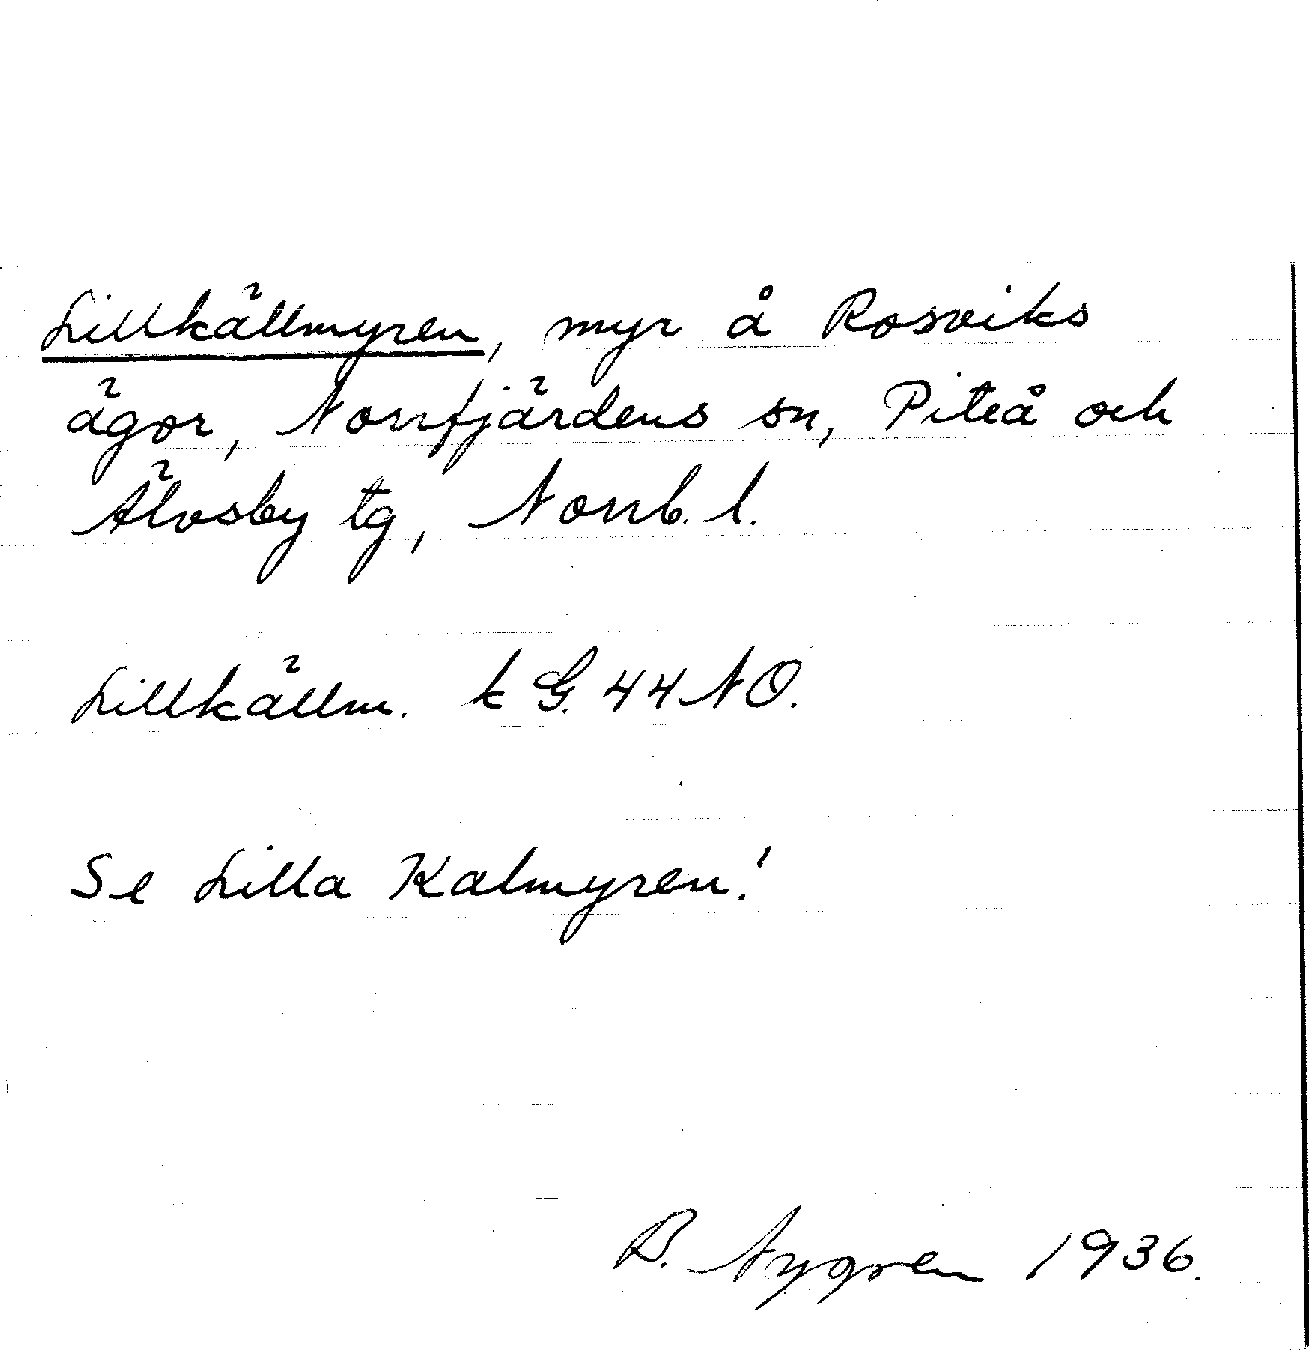 Lillkällmyren, myr å Rosviks
ägor, Norrfjärdens sn, Piteå och
Älvsby tg, Norrb. l.
Lillkällm. k G. 44 NO.
Se Lilla Kalmyren!
B. Nygren 1936.